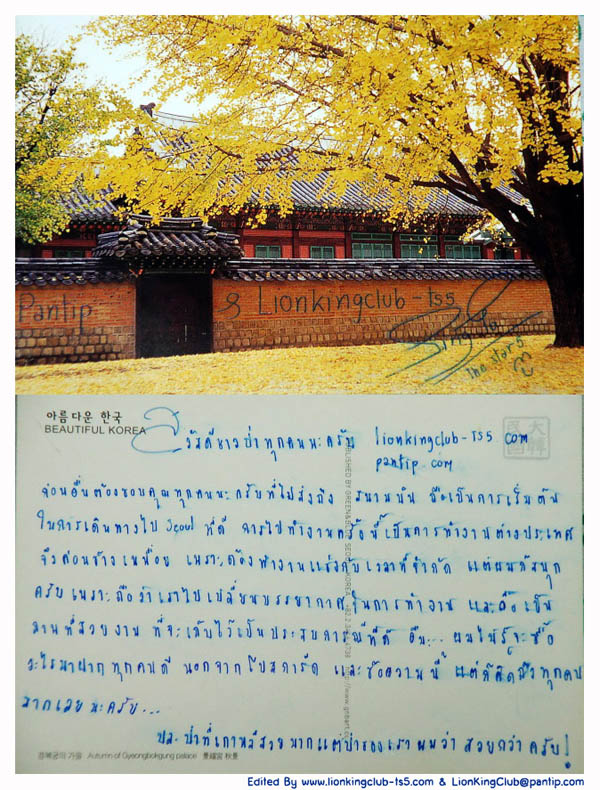 Pantip & Lionkingclub-ts5
The Star 5
아름다운 한국
BEAUTIFUL KOREA
大韓民国
สวัสดีชาวป่าทุกคนนะครับ lionkingclub-TS5 com
pantip com
ก่อนอื่นต้องขอบคุณทุกคนนะครับที่ไปส่งถึง สนามบิน ถือเป็นการเริ่มต้น
ในการเดินทางไป Seoul ที่ดี การไปทำงานครั้งนี้เป็นการทำงานต่างประเทศ
จึงค่อนข้างเหนื่อย เพราะต้องทำงานแข่งกับเวลาที่จำกัด แต่ผมก็สนุก
ครับเพราะถือว่าเราไปเปลี่ยนบรรยากาศในการทำงาน และถือเป็น
งานที่สวยงาม ที่จะเก็บไว้เป็นประสบการณ์ที่ดี อืม... ผมไม่รู้จะซื้อ
อะไรมาฝากทุกคนดี นอกจากโปสการ์ด และข้อความนี้ แต่ก็คิดถึงทุกคน
มากเลยนะครับ...
ปล. ป่าที่เกาหลีสวยมากแต่ป่าของเราผมว่า สวยกว่าครับ!
PUBLISHED BY GREEN&BLUE SEOUL KOREA
http://www.gnbart.co
경복궁의 가을 Autumn of Gyeongbokgung palace 景福宮 秋景
Edited By www.lionkingclub-ts5.com & LionKingClub@pantip.com